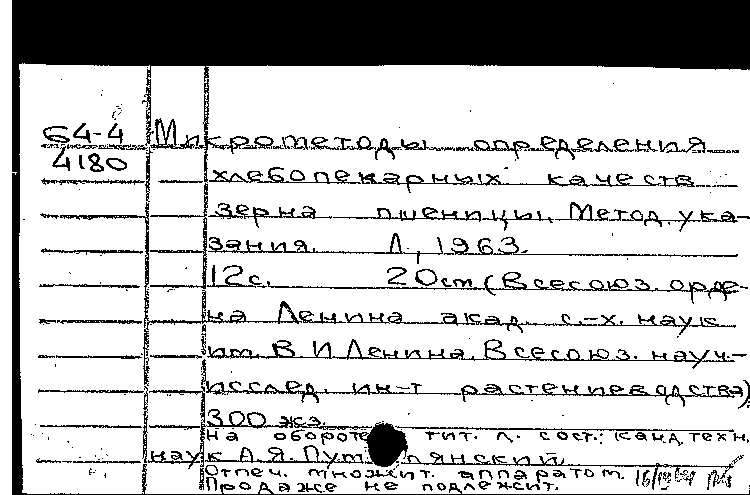 64-4 Микрометоды определения
4180
хлебопекарных качеств
зерна пшеницы. Метод. ука-
зания. Л., 1963.
12с. 20см (Всесоюз. орде-
на Ленина акад. с.-х. наук
им. В.И Ленина. Всесоюз. науч.-
исслед. ин-т растениеводства)
300 экз.
На обороте тит. л. сост.: канд. техн.
наук А.Я. Пум пянский.
Отпеч. множит. аппаратом.
Продаже не подлежит.